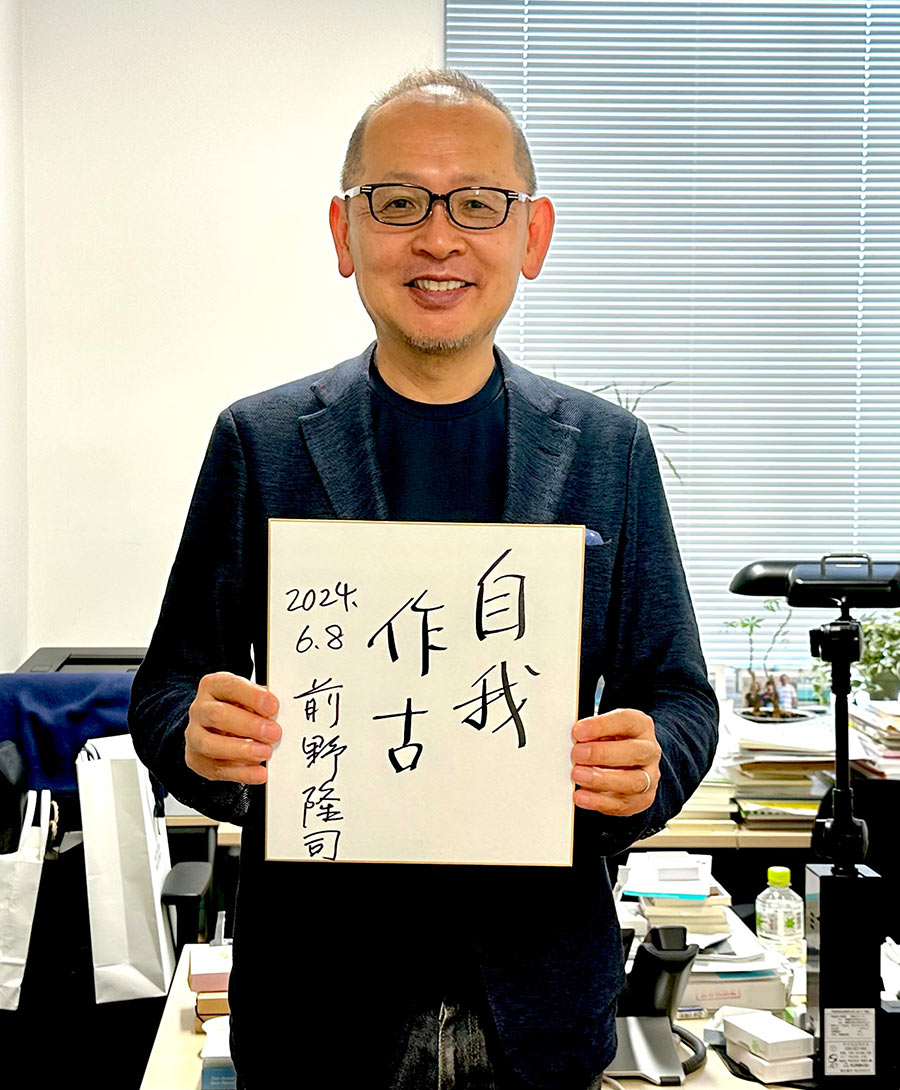 自我
作古
2024.
6.8
前野隆司